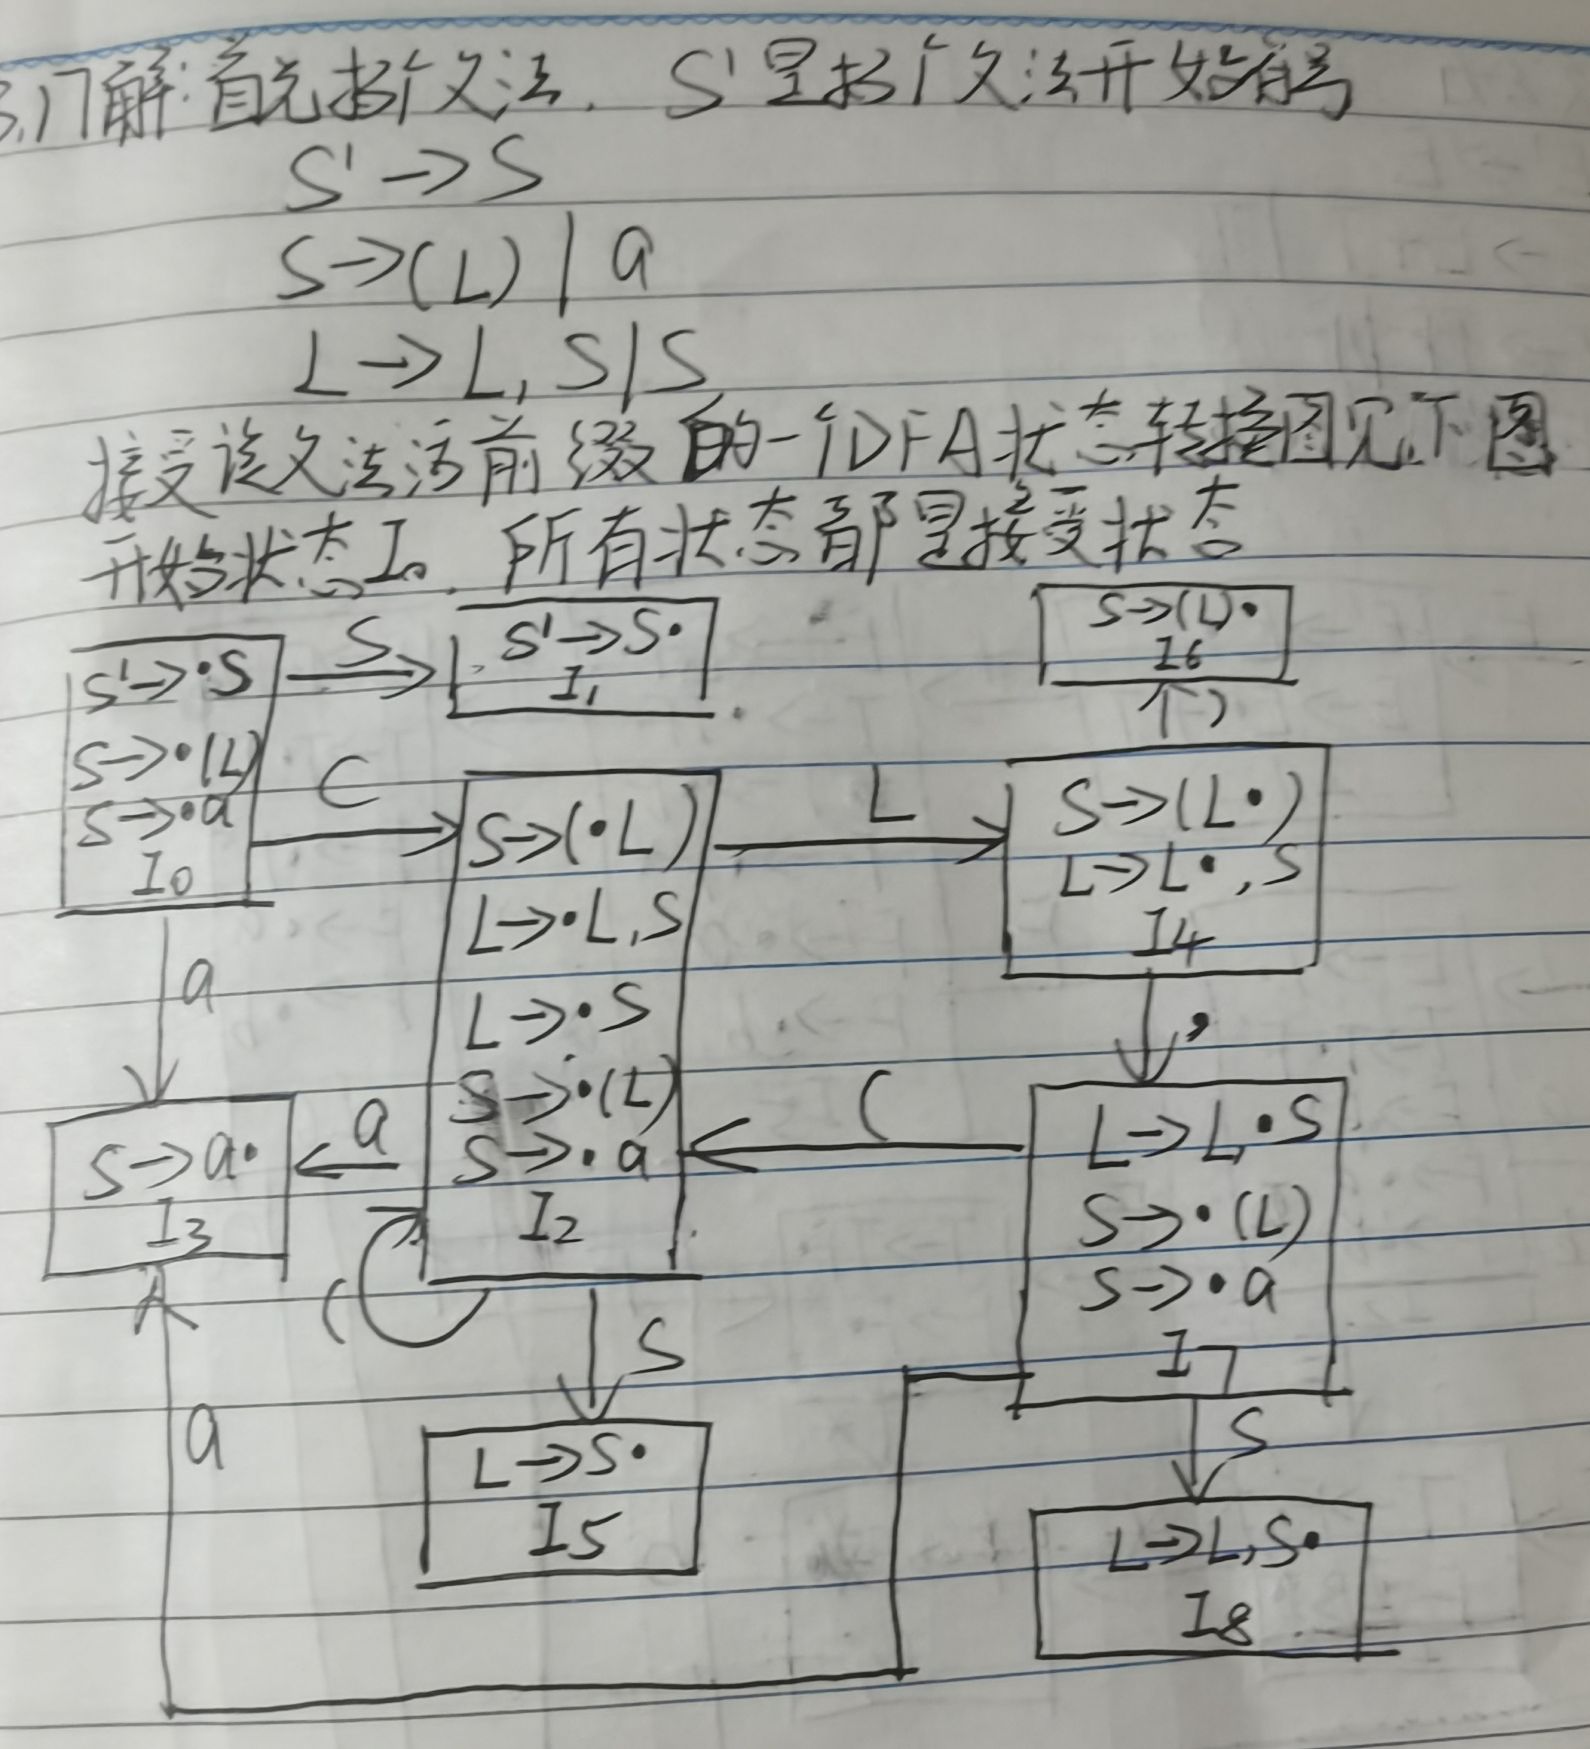 3.17解:首先拓广文法. S'是拓广文法开始符号
S'→S
S→(L) | a
L→L,S|S
接受该文法活前缀的一个DFA状态转换图见下图
开始状态I₀. 所有状态都是接受状态
S'→·S
S→·(L)
S→·a
I₀
S
S'→S·
I₁
S→(L)·
I₆
)
(
S→(·L)
L→·L,S
L→·S
S→·(L)
S→·a
I₂
L
S→(L·)
L→L·,S
I₄
a
,
S→a·
I₃
a
(
L→L,·S
S→·(L)
S→·a
I₇
(
S
a
S
L→S·
I₅
L→L,S·
I₈